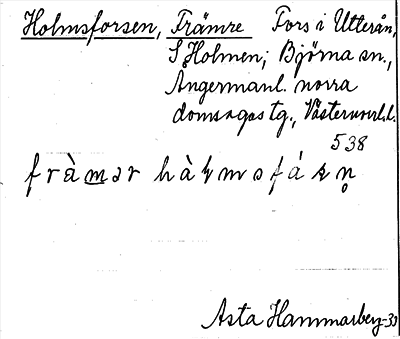 Holmsforsen, Främre Fors i Utterån,
S Holmen; Björna sn.,
Ångermanl. norra
domsagas tg., Västernorrl. l.
538
fràmər
Asta Hammarberg-33